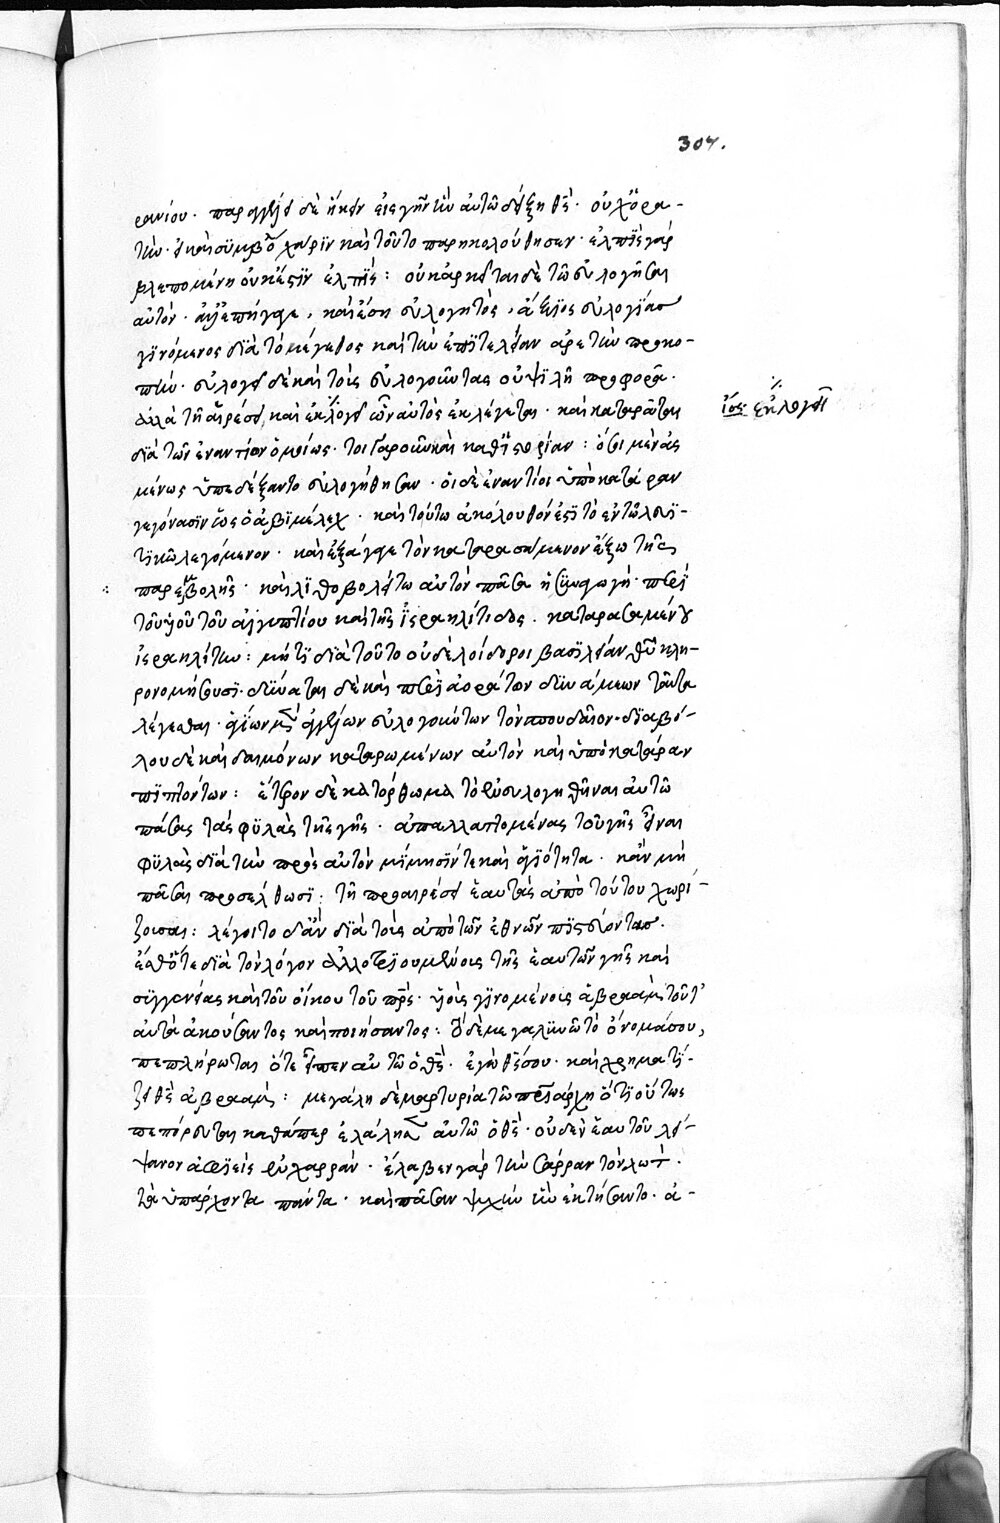 307.
ρανίου · παραγγέλλει δὲ ἥκειν εἰς γῆν ἣν αὐτῶ δείξη θς · οὐχ ὅρα-
τὴν · εἰ καὶ συμβόλου χάριν καὶ τοῦτο παρηκολούθησεν · ἐλπὶς γὰρ
βλεπομένη οὐκ ἔστιν ἐλπίς : οὐκ ἀρκεῖται δὲ τῶ εὐλογῆσαι
αὐτόν · ἀλλ' ἐπήγαγε, καὶ ἔση εὐλογητὸς, ἄξιος εὐλογίας
γινόμενος διὰ τὸ μέγεθος καὶ τὴν ἐπιτελείαν ἀρετὴν προκο-
πὴν · εὐλογεῖ δὲ καὶ τοὺς εὐλογοῦντας οὐ ψιλῆ προφορᾶ ·
ἀλλὰ τῆ αἱρέσει καὶ ἐκλογεῖ ὧν αὐτὸς ἐκλέγεται · καὶ καταρᾶται
ἴσως ἐκλογεῖ
διὰ τῶν ἐναντίων ὁμοίως · τοιγαροῦν καὶ καθ' ἱστορίαν : ὅσοι μὲν ἀσ
μένως ὑπεδέξαντο εὐλογήθησαν · οἱ δὲ ἐναντίοι ὑπὸ κατάραν
γεγόνασιν ὡς ὁ ἀβιμέλεχ · καὶ τούτω ἀκόλουθόν ἐστι τὸ ἐν τῶ λευϊ-
τικῶ λεγόμενον · καὶ ἐξάγαγε τὸν καταρασάμενον ἔξω τῆς
παρεμβολῆς · καὶ λιθοβολείτω αὐτὸν πᾶσα ἡ συναγωγή · περὶ
τοῦ υἱοῦ τοῦ αἰγυπτίου καὶ τῆς ἰσραηλίτιδος · καταρασαμένου
ἰσραηλίτην : μήτι διὰ τοῦτο οὐδὲ λοίδοροι βασιλείαν θυ κλη-
ρονομήσουσι · δύναται δὲ καὶ περὶ ἀοράτων δυνάμεων ταῦτα
λέγεσθαι · ἁγίων μὲν ἀγγέλων εὐλογούντων τὸν σπουδαῖον · διαβό-
λου δὲ καὶ δαιμόνων καταρωμένων αὐτὸν καὶ ὑπὸ κατάραν
πιπτόντων : ἕτερον δὲ κατόρθωμα τὸ ἐνευλογηθῆναι αὐτῶ
πάσας τὰς φυλὰς τῆς γῆς · ἀπαλλαττομένας τοῦ γῆς εἶναι
φυλὰς διὰ τὴν πρὸς αὐτὸν μίμησίν τε καὶ ἁγιότητα · κἂν μὴ
πᾶσαι προσέλθωσι : τῆ προαιρέσει ἑαυτὰς ἀπὸ τούτου χωρί-
ζουσαι : λέγοιτο δ' ἂν διὰ τοὺς ἀπὸ τῶν ἐθνῶν πιστεύοντας ·
ἔσθ' ὅτε διὰ τὸν λόγον ἀλλοτριουμένοις τῆς ἑαυτῶν γῆς καὶ
συγγενείας καὶ τοῦ οἴκου τοῦ πρς · υἱοὶς γινομένοις ἀβραὰμ τοῦ τ'
αὐτὰ ἀκούσαντος καὶ ποιήσαντος : τὸ δὲ μεγαλυνῶ τὸ ὄνομά σου,
πεπλήρωται ὅτε εἶπεν αὐτῶ ὁ θς · ἐγὼ θς σου · καὶ χρηματί-
ζει θς ἀβραάμ : μεγάλη δὲ μαρτυρία τῶ πριάρχη ὅτι οὕτως
πεπόρευται καθάπερ ἐλάλησεν αὐτῶ ὁ θς · οὐδὲν ἑαυτοῦ λεί-
ψανον ἀφεὶς ἐν χαρράν · ἔλαβεν γὰρ τὴν σάρραν τὸν λώτ ·
τὰ ὑπάρχοντα πάντα · καὶ πᾶσαν ψυχὴν ἣν ἐκτήσαντο · ἀ-